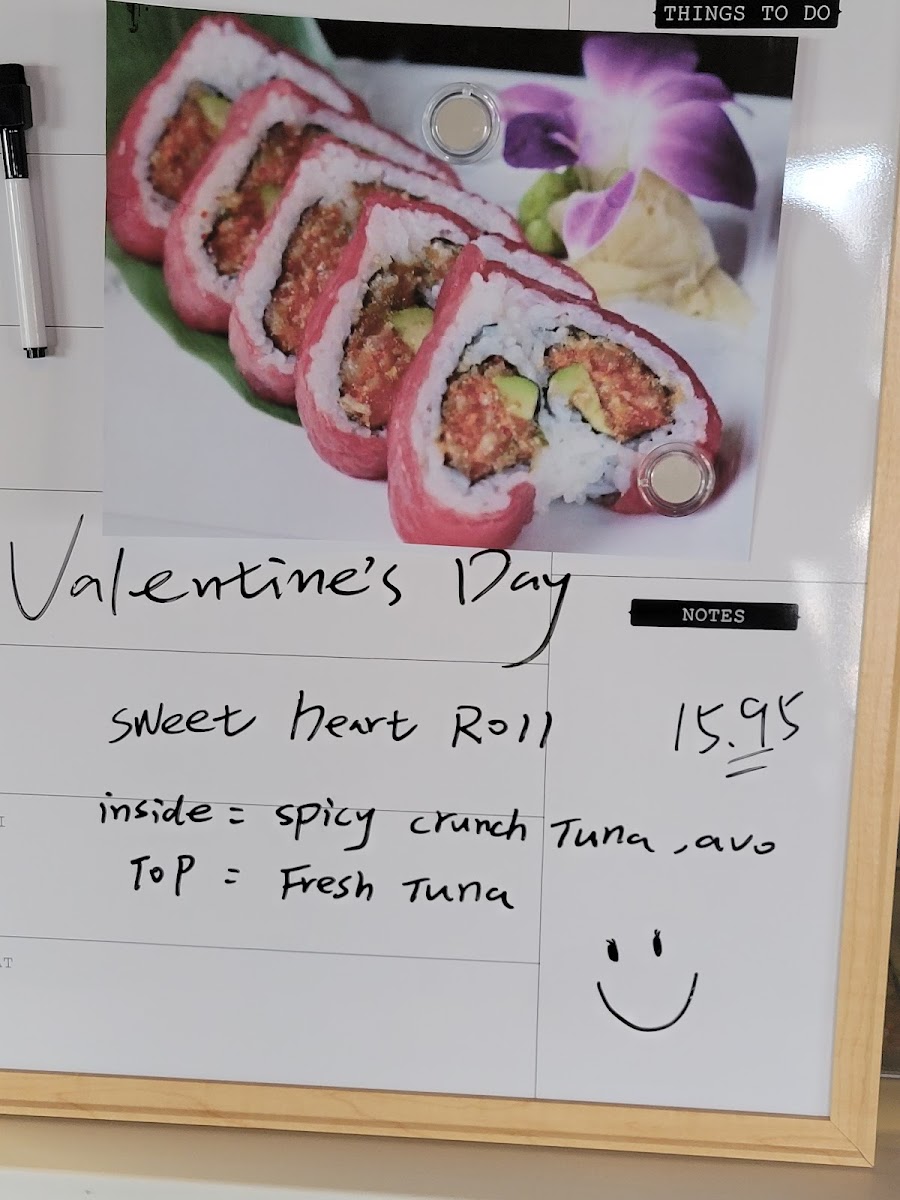 THINGS TO DO
Valentine's Day
NOTES
sweet heart Roll
15.95
inside = spicy crunch Tuna, avo
TOP = Fresh Tuna